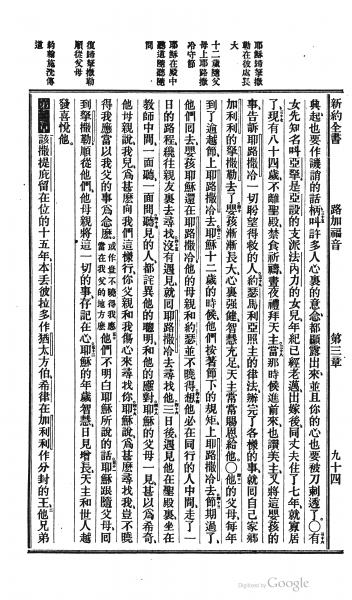 新約全書　路加福音　第三章　九十四
耶穌歸拏撒
勒在彼處長
大
十二歲隨父
母上耶路撒
冷守節
耶穌在殿中
聽道隨聽隨
問
復歸拏撒勒
順從父母
約翰施洗傳
道
典起也要作譏誚的話柄叫許多人心裏的意念都顯露出來並且你的心也要被刀刺透了〇有
女先知名叫亞拏是亞設的支派法內力的女兒年紀已經老邁出嫁後同丈夫住了七年就寡居
了現有八十四歲不離聖殿禁食祈禱晝夜禮拜天主當那時候進前來也讚美主又將這嬰孩的
事告訴耶路撒冷一切盼望得救的人約瑟馬利亞照主的律法辦完了各樣的事就囘自己家鄉
加利利的拏撒勒去了嬰孩漸漸長大心裏強健智慧充足天主當常賜恩給他〇他的父母每年
到了逾越節上耶路撒冷去耶穌十二歲的時候他們按著節下的規矩上耶路撒冷去節期過了
他們囘去嬰孩耶穌還在耶路撒冷他的母親和約瑟並不曉得想他必在同行的人中間走了一
日的路程纔在親友裏去尋找沒有遇見就囘耶路撒冷去尋找他三日後遇見他在聖殿裏坐在
教師中間一面聽一面問聽見的人都詫異他的聰明和他的應對耶穌的父母一見甚以爲希奇
他母親說我兒爲甚麼向我們這樣行你父親和我傷心來尋找你耶穌說爲甚麼尋找我豈不曉
得我應當以我父的事爲念麼或作豈不曉得我應當在我父的地方麼他們不明白耶穌所說的話耶穌跟隨父母囘
到拏撒勒順從他們他母親將這一切的事存記在心耶穌的年歲智慧日見增長天主和世人越
發喜悅他
第三章該撒提庇留在位的十五年本丟彼拉多作猶太方伯希律在加利利作分封的王他兄弟
Digitized by Google